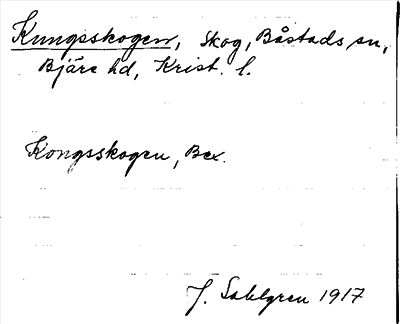 Kungsskogen, Skog, Båstads sn,
Bjäre hd, Krist. l.
Kongsskogen, Bex.
J. Sahlgren 1917